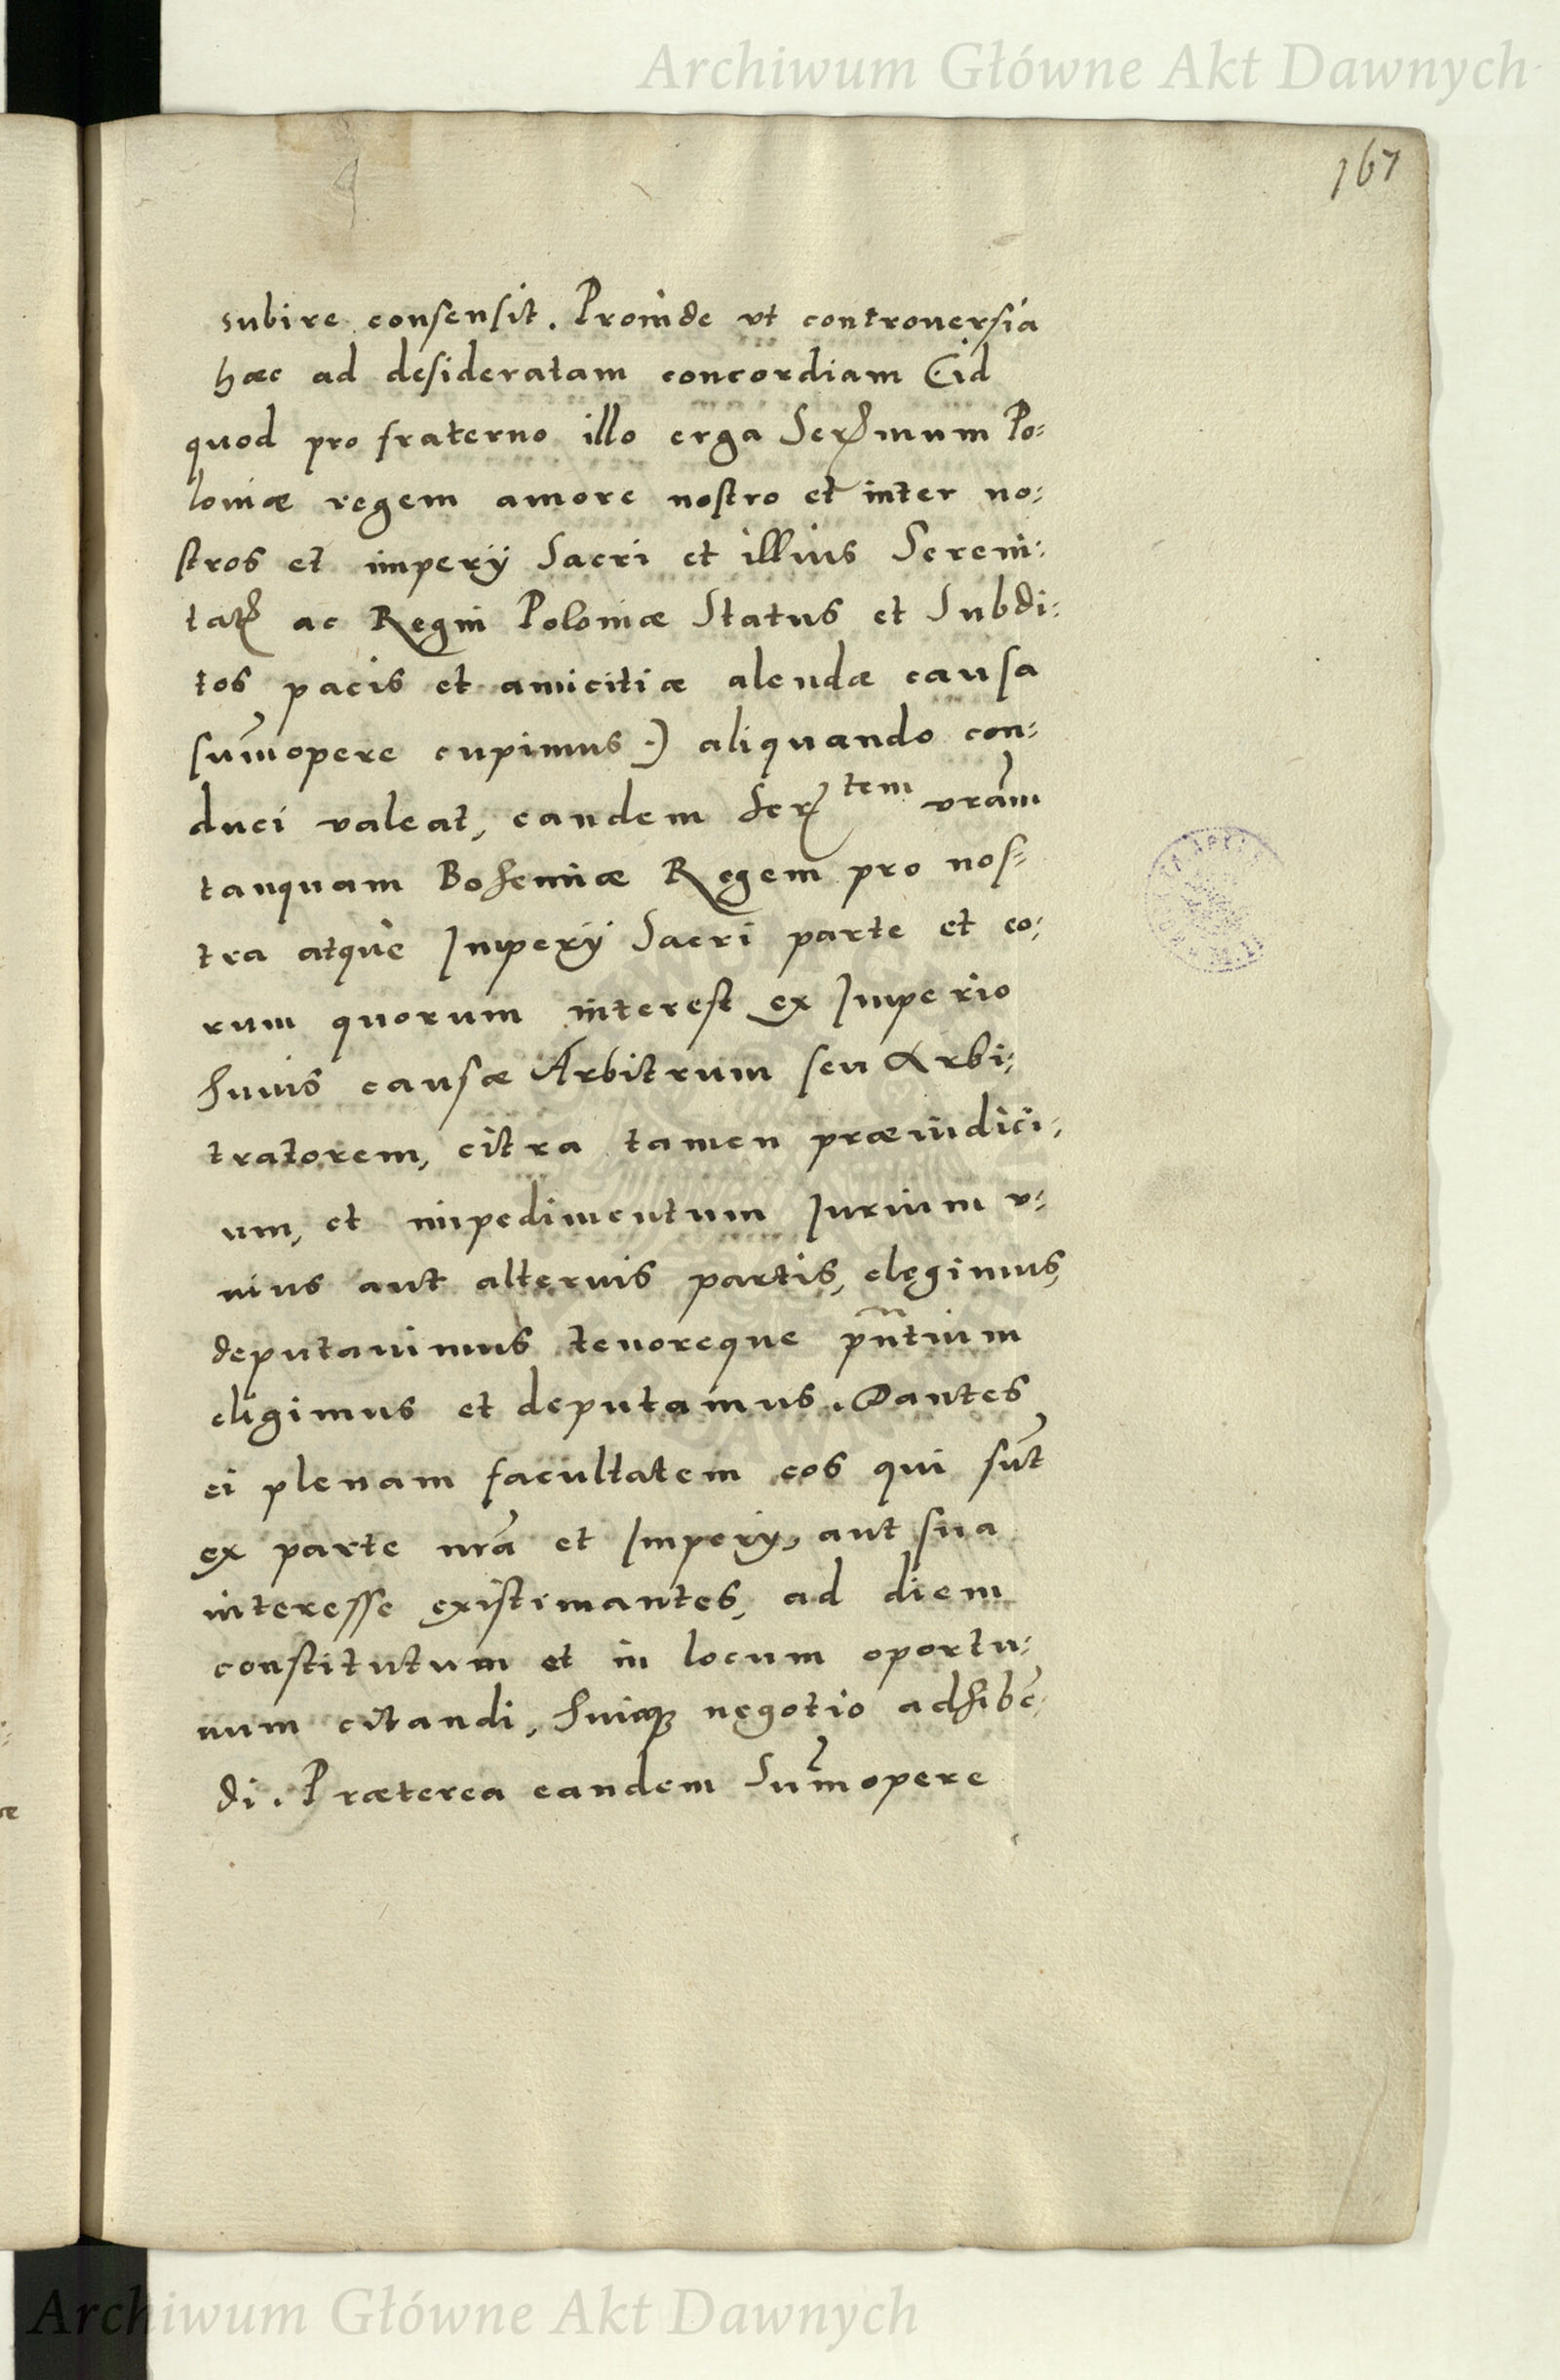 Archiwum Główne Akt Dawnych
167
subire consensit. Proinde vt controuersia
hæc ad desideratam concordiam (id
quod pro fraterno illo erga Serᵐmum Po=
loniæ regem amore nostro et inter no=
stros et imperij Sacri et illius Sereni=
tatis ac Regni Poloniæ Status et Subdi=
tos pacis et amicitiæ alendæ causa
sum̄opere cupimus.) aliquando con=
duci valeat, eandem Serᵗᵉᵐ vram̄
tanquam Bohemiæ Regem pro nos=
tra atque Imperij Sacri parte et eo=
rum quorum interest ex Imperio
huius causæ Arbitrum seu Arbi=
tratorem, citra tamen præiudici=
um, et impedimentum Iurium v=
nius aut alterius partis, elegimus,
deputauimus tenoreque pn̄tium
eligimus et deputamus. Dantes
ei plenam facultatem eos qui sūt
ex parte nrā et Imperij, aut sua
interesse existimantes, ad diem
constitutum et in locum oportu=
num citandi, huicqꝫ negotio adhibē=
di. Præterea eandem Sum̄opere
Archiwum Główne Akt Dawnych